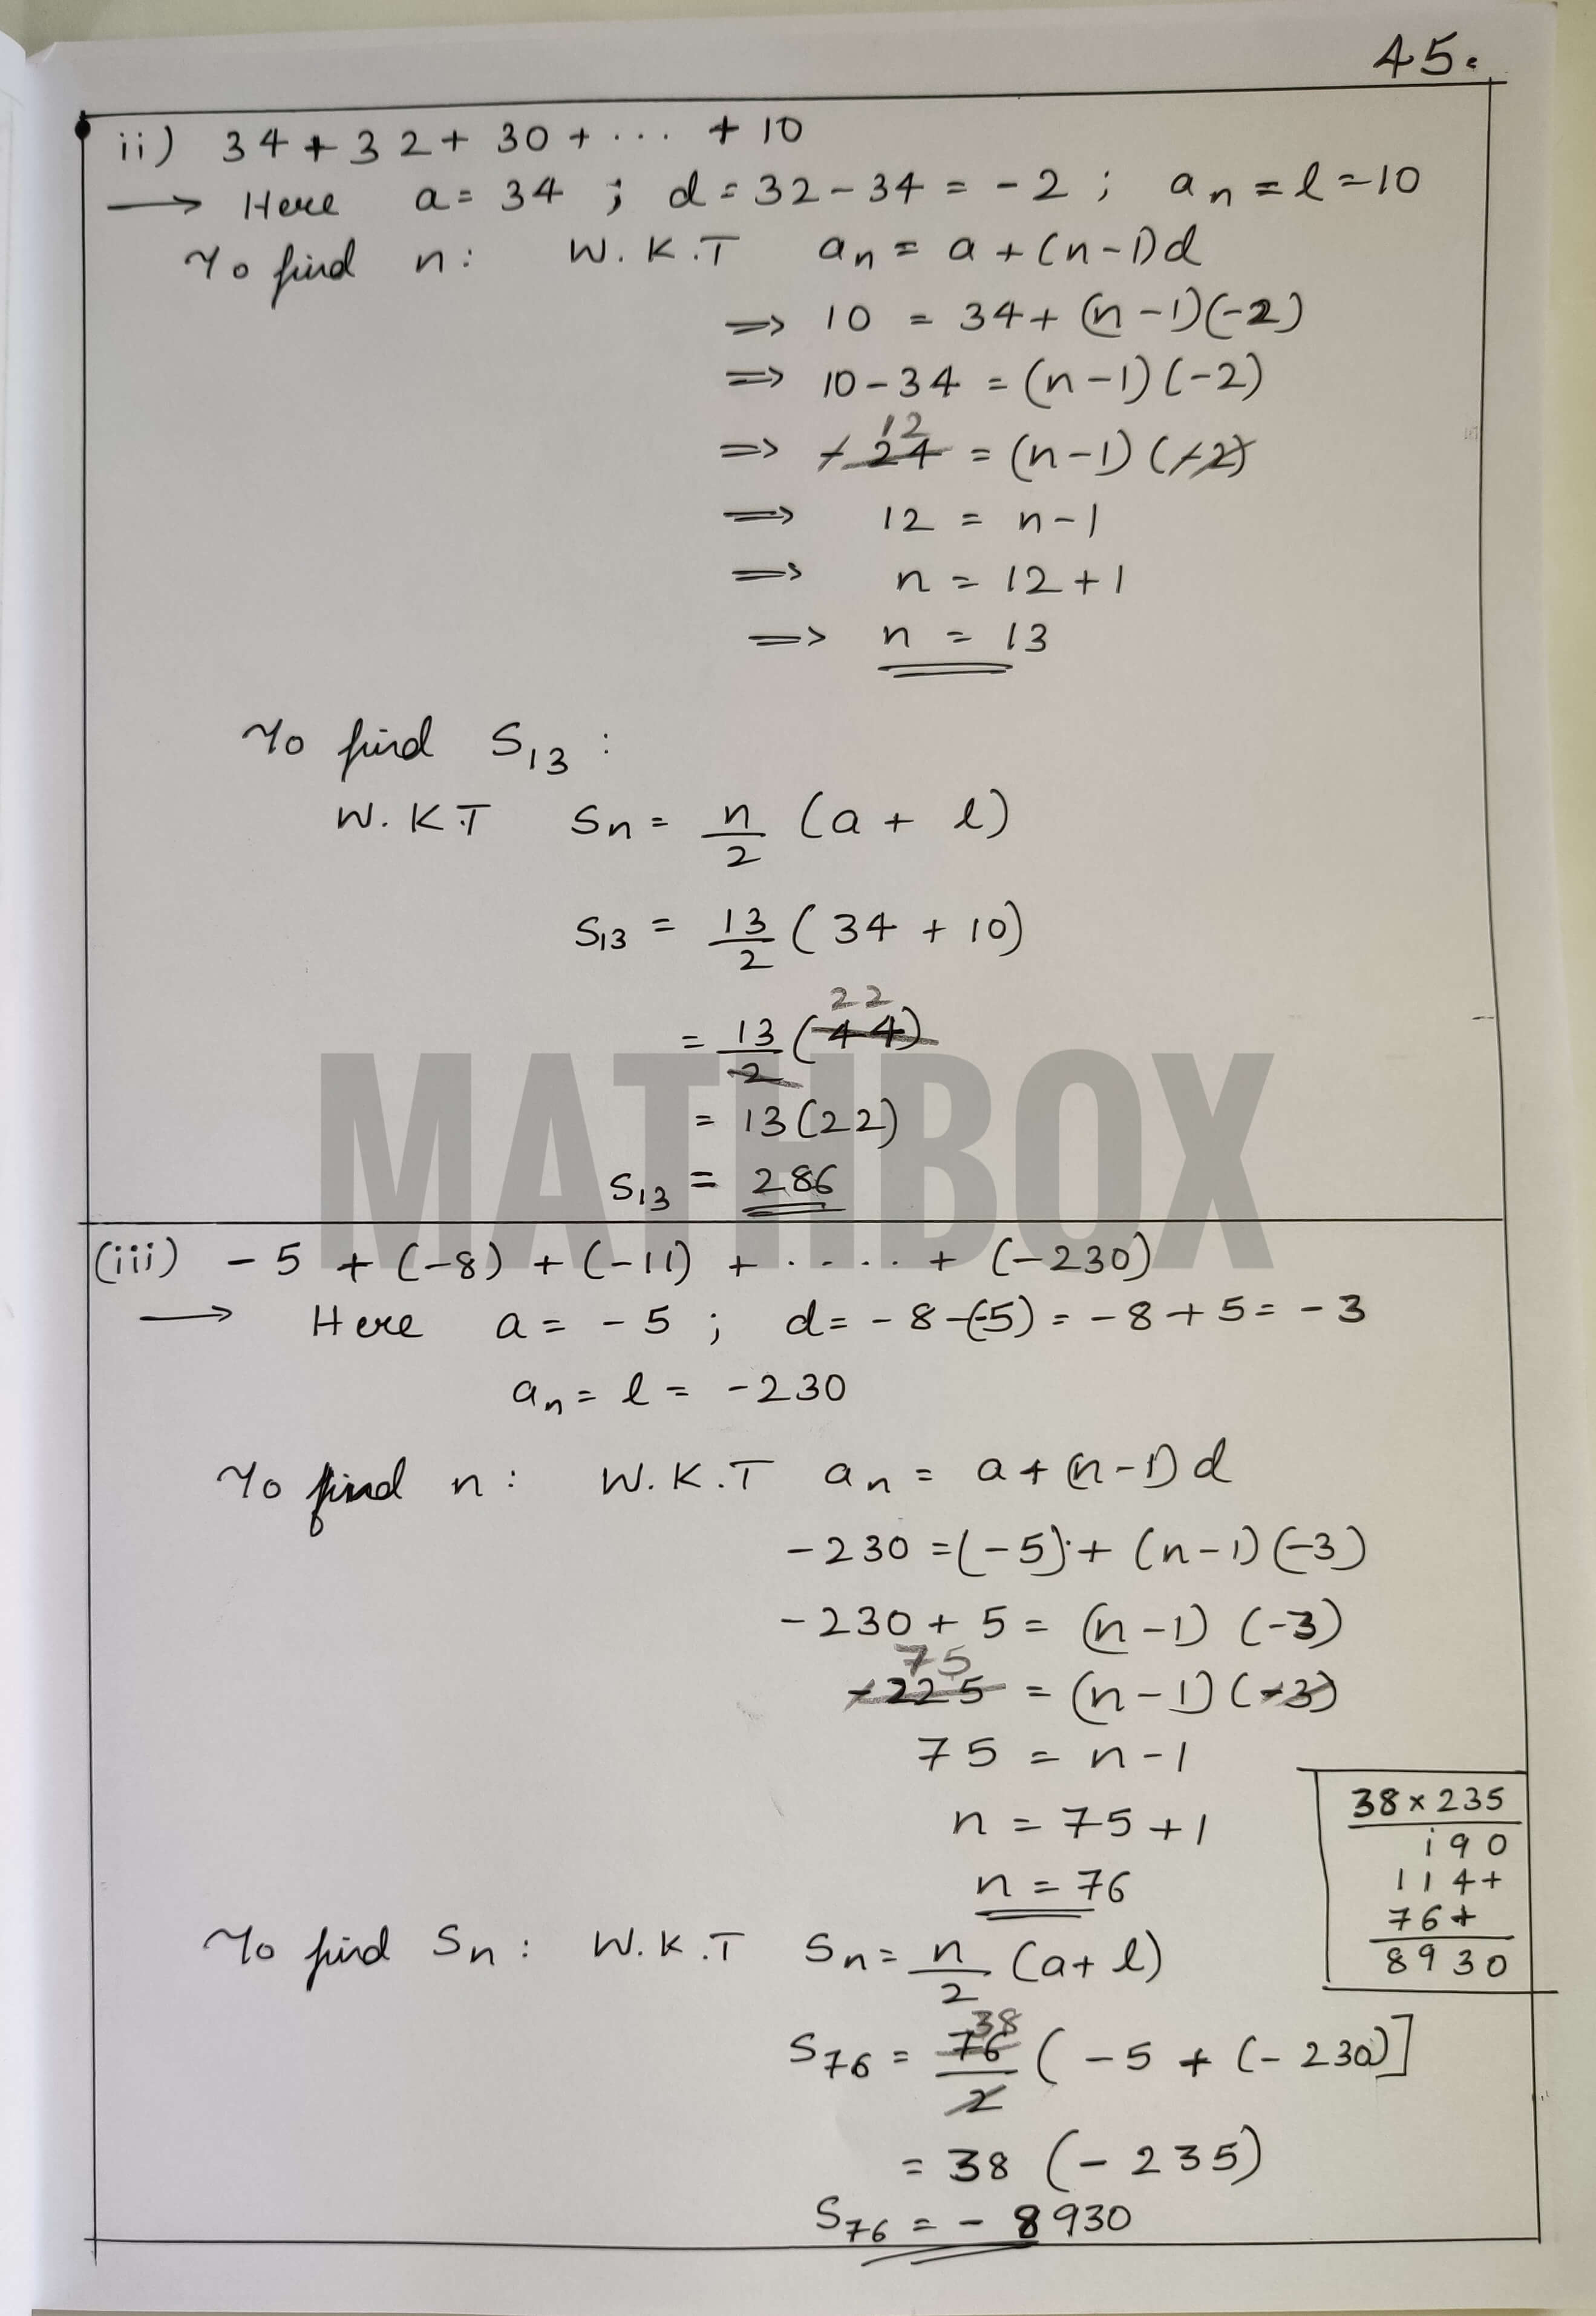 45.
ii) 34 + 32 + 30 + ... + 10
→ Here a = 34 ; d = 32 - 34 = -2 ; aₙ = l = 10
To find n: W.K.T aₙ = a + (n-1)d
⇒ 10 = 34 + (n-1)(-2)
⇒ 10-34 = (n-1)(-2)
12
⇒ -24 = (n-1)(-2)
⇒ 12 = n-1
⇒ n = 12+1
⇒ n = 13
To find S₁₃ :
W.K.T Sₙ = n/2 (a + l)
S₁₃ = 13/2 (34 + 10)
22
= 13/2 (44)
= 13(22)
S₁₃ = 286
MATHBOX
(iii) -5 + (-8) + (-11) + ..... + (-230)
→ Here a = -5 ; d = -8-(-5) = -8+5 = -3
aₙ = l = -230
To find n: W.K.T aₙ = a+(n-1)d
-230 = (-5) + (n-1)(-3)
-230 + 5 = (n-1) (-3)
75
-225 = (n-1)(-3)
75 = n-1
n = 75+1
n = 76
38 x 235
190
114+
76+
8930
To find Sₙ : W.K.T Sₙ = n/2 (a+l)
38
S₇₆ = 76/2 ( -5 + (-230)]
= 38 (-235)
S₇₆ = -8930